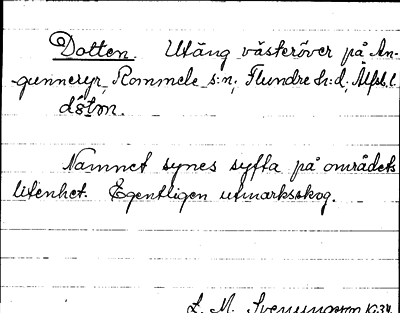 Dotten. Utäng västeröver på An-
gunneryr, Rommele s:n, Flundre h:d, Älfsb. l.
dòtṇ.
Namnet synes syfta på områdets
litenhet. Egentligen utmarksskog.
L. M. Svenungsson 1934.